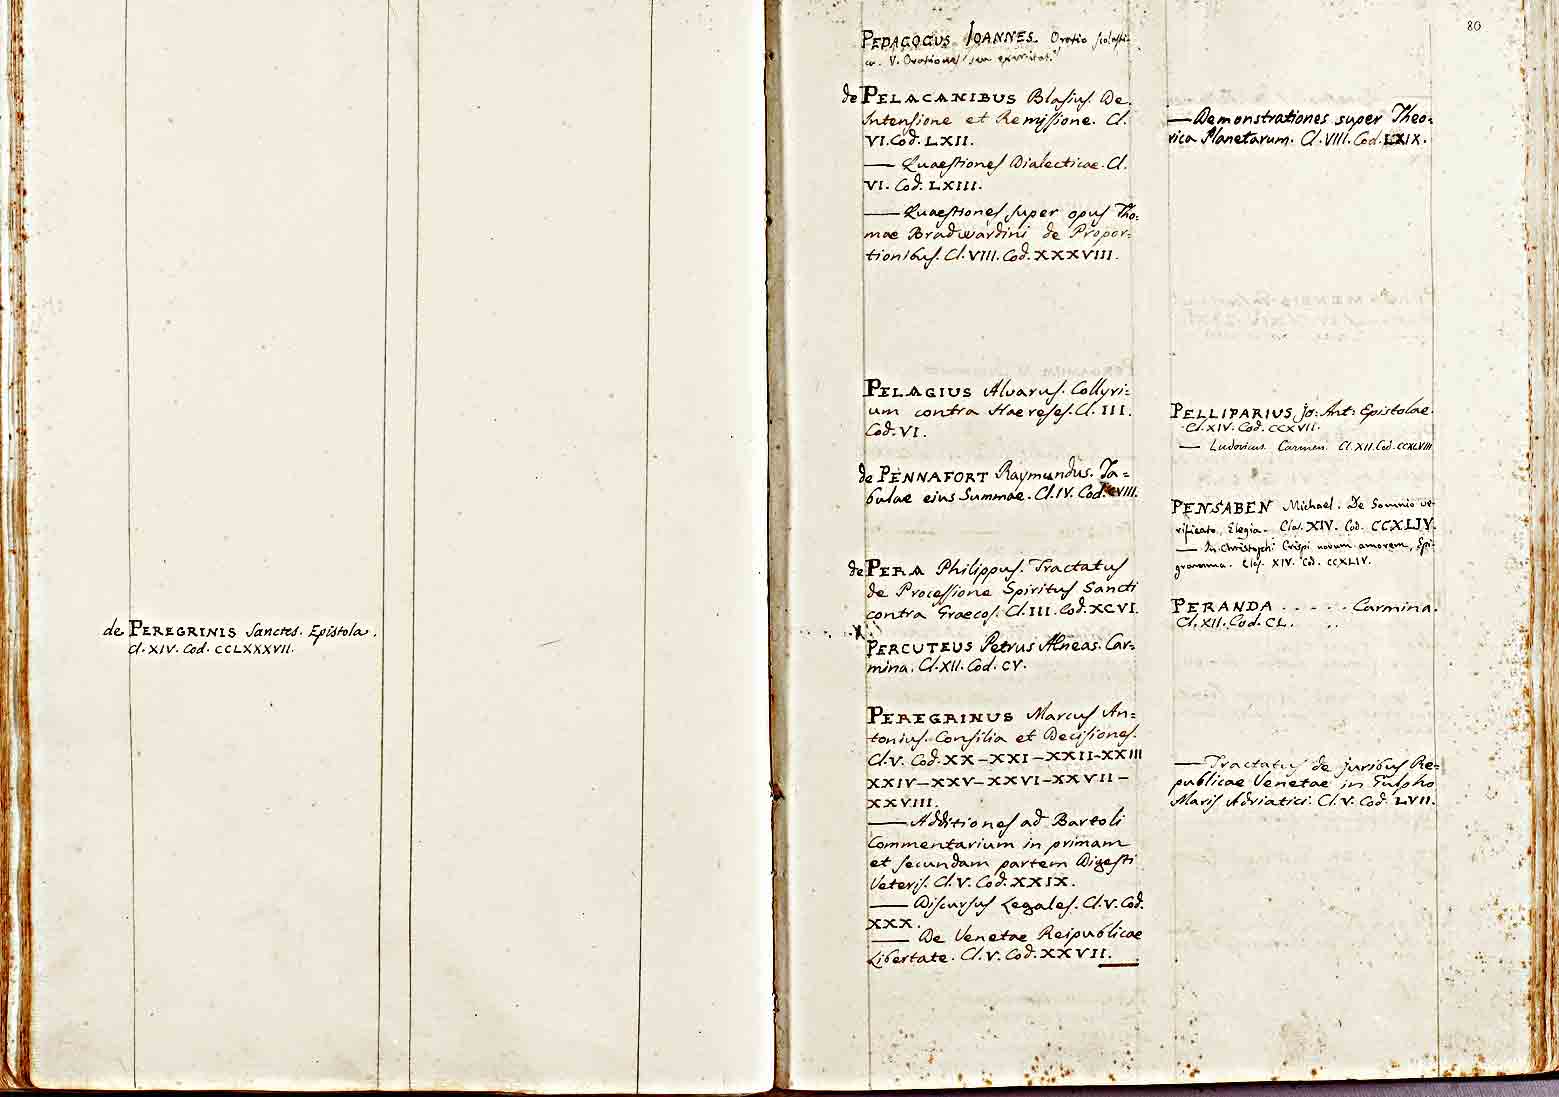 de PEREGRINIS Sanctes. Epistola.
Cl. XIV. Cod. CCLXXXVII.
80
PEDAGOGUS IOANNES. Oratio scolasti-
ca. V. Orationes seu exercitat.
de PELACANIBUS Blasius. De
Intensione et Remissione. Cl.
VI. Cod. LXII.
— Quaestiones Dialecticae. Cl.
VI. Cod. LXIII.
— Quaestiones super opus Tho=
mae Bradwardini de Propor=
tionibus. Cl. VIII. Cod. XXXVIII.
PELAGIUS Alvarus. Collyri=
um contra Haereses. Cl. III.
Cod. VI.
de PENNAFORT Raymundus. Ta=
bulae eius Summae. Cl. IV. Cod. CVIII.
de PERA Philippus. Tractatus
de Processione Spiritus Sancti
contra Graecos. Cl. III. Cod. XCVI.
PERCUTEUS Petrus AEneas. Car=
mina. Cl. XII. Cod. CV.
PEREGRINUS Marcus An=
tonius. Consilia et Decisiones.
Cl. V. Cod. XX–XXI–XXII–XXIII
XXIV–XXV–XXVI–XXVII–
XXVIII.
— Additiones ad Bartoli
Commentarium in primam
et secundam partem Digesti
Veteris. Cl. V. Cod. XXIX.
— Discursus Legales. Cl. V. Cod.
XXX.
— De Venetae Reipublicae
Libertate. Cl. V. Cod. XXVII.
— Demonstrationes super Theo=
rica Planetarum. Cl. VIII. Cod. LXIX.
PELLIPARIUS, Jo: Ant: Epistolae.
Cl. XIV. Cod. CCXVII.
— Ludovicus. Carmen. Cl. XII. Cod. CCXLVIII
PENSABEN Michael. De Somnio ve-
rificato, Elegia. Clas. XIV. Cod. CCXLIV.
— In Christophi Crispi novum amorem, Epi-
gramma. Clas. XIV. Cod. CCXLIV.
PERANDA . . . . . Carmina.
Cl. XII. Cod. CL.
— Tractatus de juribus Re=
publicae Venetae in Gulpho
Maris Adriatici. Cl. V. Cod. LVII.